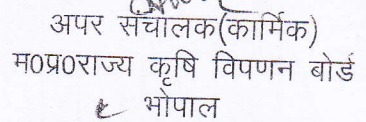 अपर संचालक(कार्मिक)
म0प्र0राज्य कृषि विपणन बोर्ड
भोपाल